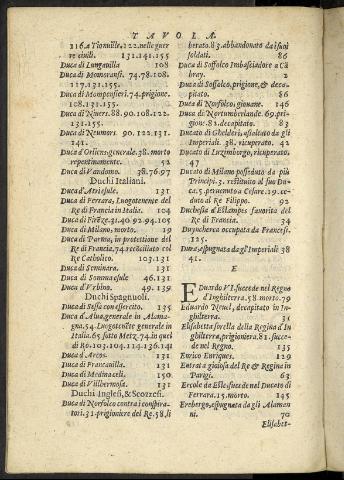 TAVOLA.
116. a Tionuille. 122. nelle guer
re ciuili. 131. 141. 155
Duca di Lungauilla 108
Duca di Momoransi. 74. 78. 108.
117. 131. 155.
Duca di Mompensieri. 74. prigione.
108. 131. 155.
Duca di Niuers. 88. 90. 108. 122.
131. 155.
Duca di Neumors. 90. 122. 131.
141.
Duca d'Orliens generale. 38. morto
repentinamente. 52
Duca di Vandomo. 38. 76. 97
Duchi Italiani.
Duca d'Atri esule. 131
Duca di Ferrara, Luogotenente del
Re di Francia in Italia. 104
Duca di Fireze. 31. 40. 92. 94. 105
Duca di Milano, morto. 19
Duca di Parma, in protettione del
Re di Francia, 74 recõciliato col
Re Catholico. 103. 131
Duca di Seminara. 131
Duca di Somma esule 46. 131
Duca d'Vrbino. 49. 139
Duchi Spagnuoli.
Duca di Sessa con essercito. 135
Duca d'Alua, generale in Alama-
gna. 54. Luogotenẽte generale in
Italia. 65. sotto Metz. 74. in quel
di Ro. 103. 104. 114. 136. 141
Duca d'Arcos. 131
Duca di Francauilla. 131
Duca di Medinaceli. 150
Duca di Villhermosa. 131
Duchi Inglesi, & Scozzesi.
Duca di Norfolco contra i conspira-
tori. 31. prigioniere del Re. 58. li
berato. 83. abbandonato da i suoi
soldati. 86
Duca di Soffolco Imbasciadore a Cã
bray. 2
Duca di Soffolco, prigione, & deca-
pitato. 86
Duca di Norfolco, giouane. 146
Duca di Northumberlande. 69. pri-
gione. 82. decapitato. 83
Ducato di Gheldria, assoltato da gli
Imperiali. 38. ricuperato. 42
Ducato di Luzimborgo, ricuperato.
47
Ducato di Milano posseduto da più
Principi. 3. restituito al suo Du-
ca. 5. peruenuto a Cesare. 19. ce-
duto al Re Filippo. 92
Duchessa d'Estampes fauorita del
Re di Francia. 34
Duyncherca occupata da Francesi.
125.
Dura, espugnata da gl'Imperiali 38
41.
E
EDuardo VI. succede nel Regno
d'Inghilterra. 58 morto 79
Eduardo Neuel, decapitato in In-
ghilterra. 31
Elisabetta sorella della Regina d'In
ghilterra, prigioniera. 81. succe-
de nel Regno. 135
Enrico Enriques. 129
Entrata gioiosa del Re & Regina in
Parigi. 63
Ercole da Este succede nel Ducato di
Ferrara. 15. morto. 145
Erebergo, espugnata da gli Alaman
ni 70
Elisabet-